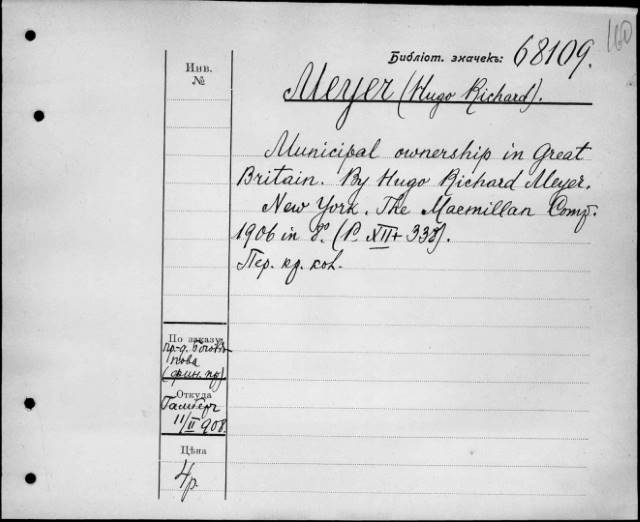 160
Библіот. значекъ: 68109.
Инв.
№
Meyer (Hugo Richard).
Municipal ownership in Great
Britain. By Hugo Richard Meyer.
New York. The Macmillan Comp.
1906 in 8º. (P. XII + 338).
Пер. кд. кол.
По заказу:
пр-д. Боголѣ-
пова
(фин. пр)
Откуда
11/II 908.
Цѣна
4р.